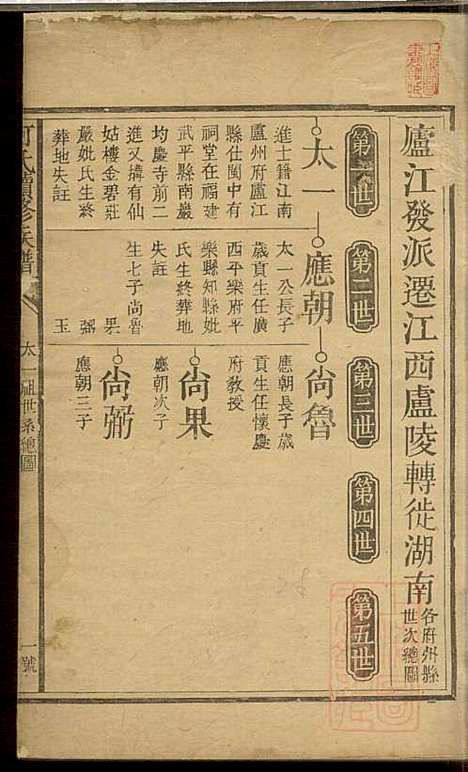 廬江發派遷江西盧陵轉徙湖南各府州縣世次總圖
第一世
第二世
第三世
第四世
第五世
太一
進士籍江南
廬州府廬江
縣仕閩中有
祠堂在福建
武平縣南巖
均慶寺前二
進又構有仙
姑樓金碧莊
嚴妣氏生終
葬地失註
應朝
太一公長子
歲貢生任廣
西平樂府平
樂縣知縣妣
氏生終葬地
失註
生七子尚魯
果
弼
玉
尚魯
應朝長子歲
貢生任懷慶
府教授
尚果
應朝次子
尚弼
應朝三子
何氏續修族譜
太一祖世系總圖
一號